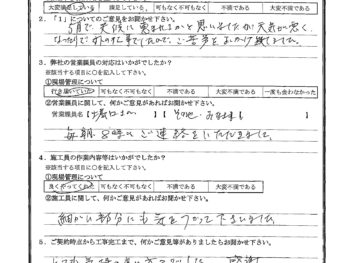 大変満足している 満足している 可もなく不可もなく 不満である 大変不満である
2.「1」についてのご意見をお聞かせ下さい。
5月で天候に恵まれるかと思いましたが天気が悪く
3. 弊社の営業職員の対応はいかがでしたか?
※該当する項目に○を記入して下さい。
①現場管理について
行き届いていた 可もなく不可もなく 不満である 大変不満である 一度も会わなかった
②営業職員に関して、何かご意見があればお聞かせ下さい。
営業職員名【 】【 】
毎朝8時にご連絡をいただきました。
4. 施工員の作業内容等はいかがでしたか?
※該当する項目に○を記入して下さい。
①現場管理について
良くやってくれた 可もなく不可もなく 不満である 大変不満である
②施工員に関して、何かご意見があればお聞かせ下さい。
細かい部分にも気をつかって下さいました。
5. ご契約時点から工事完工まで、何かご意見等がありましたらお聞かせ下さい。
感謝